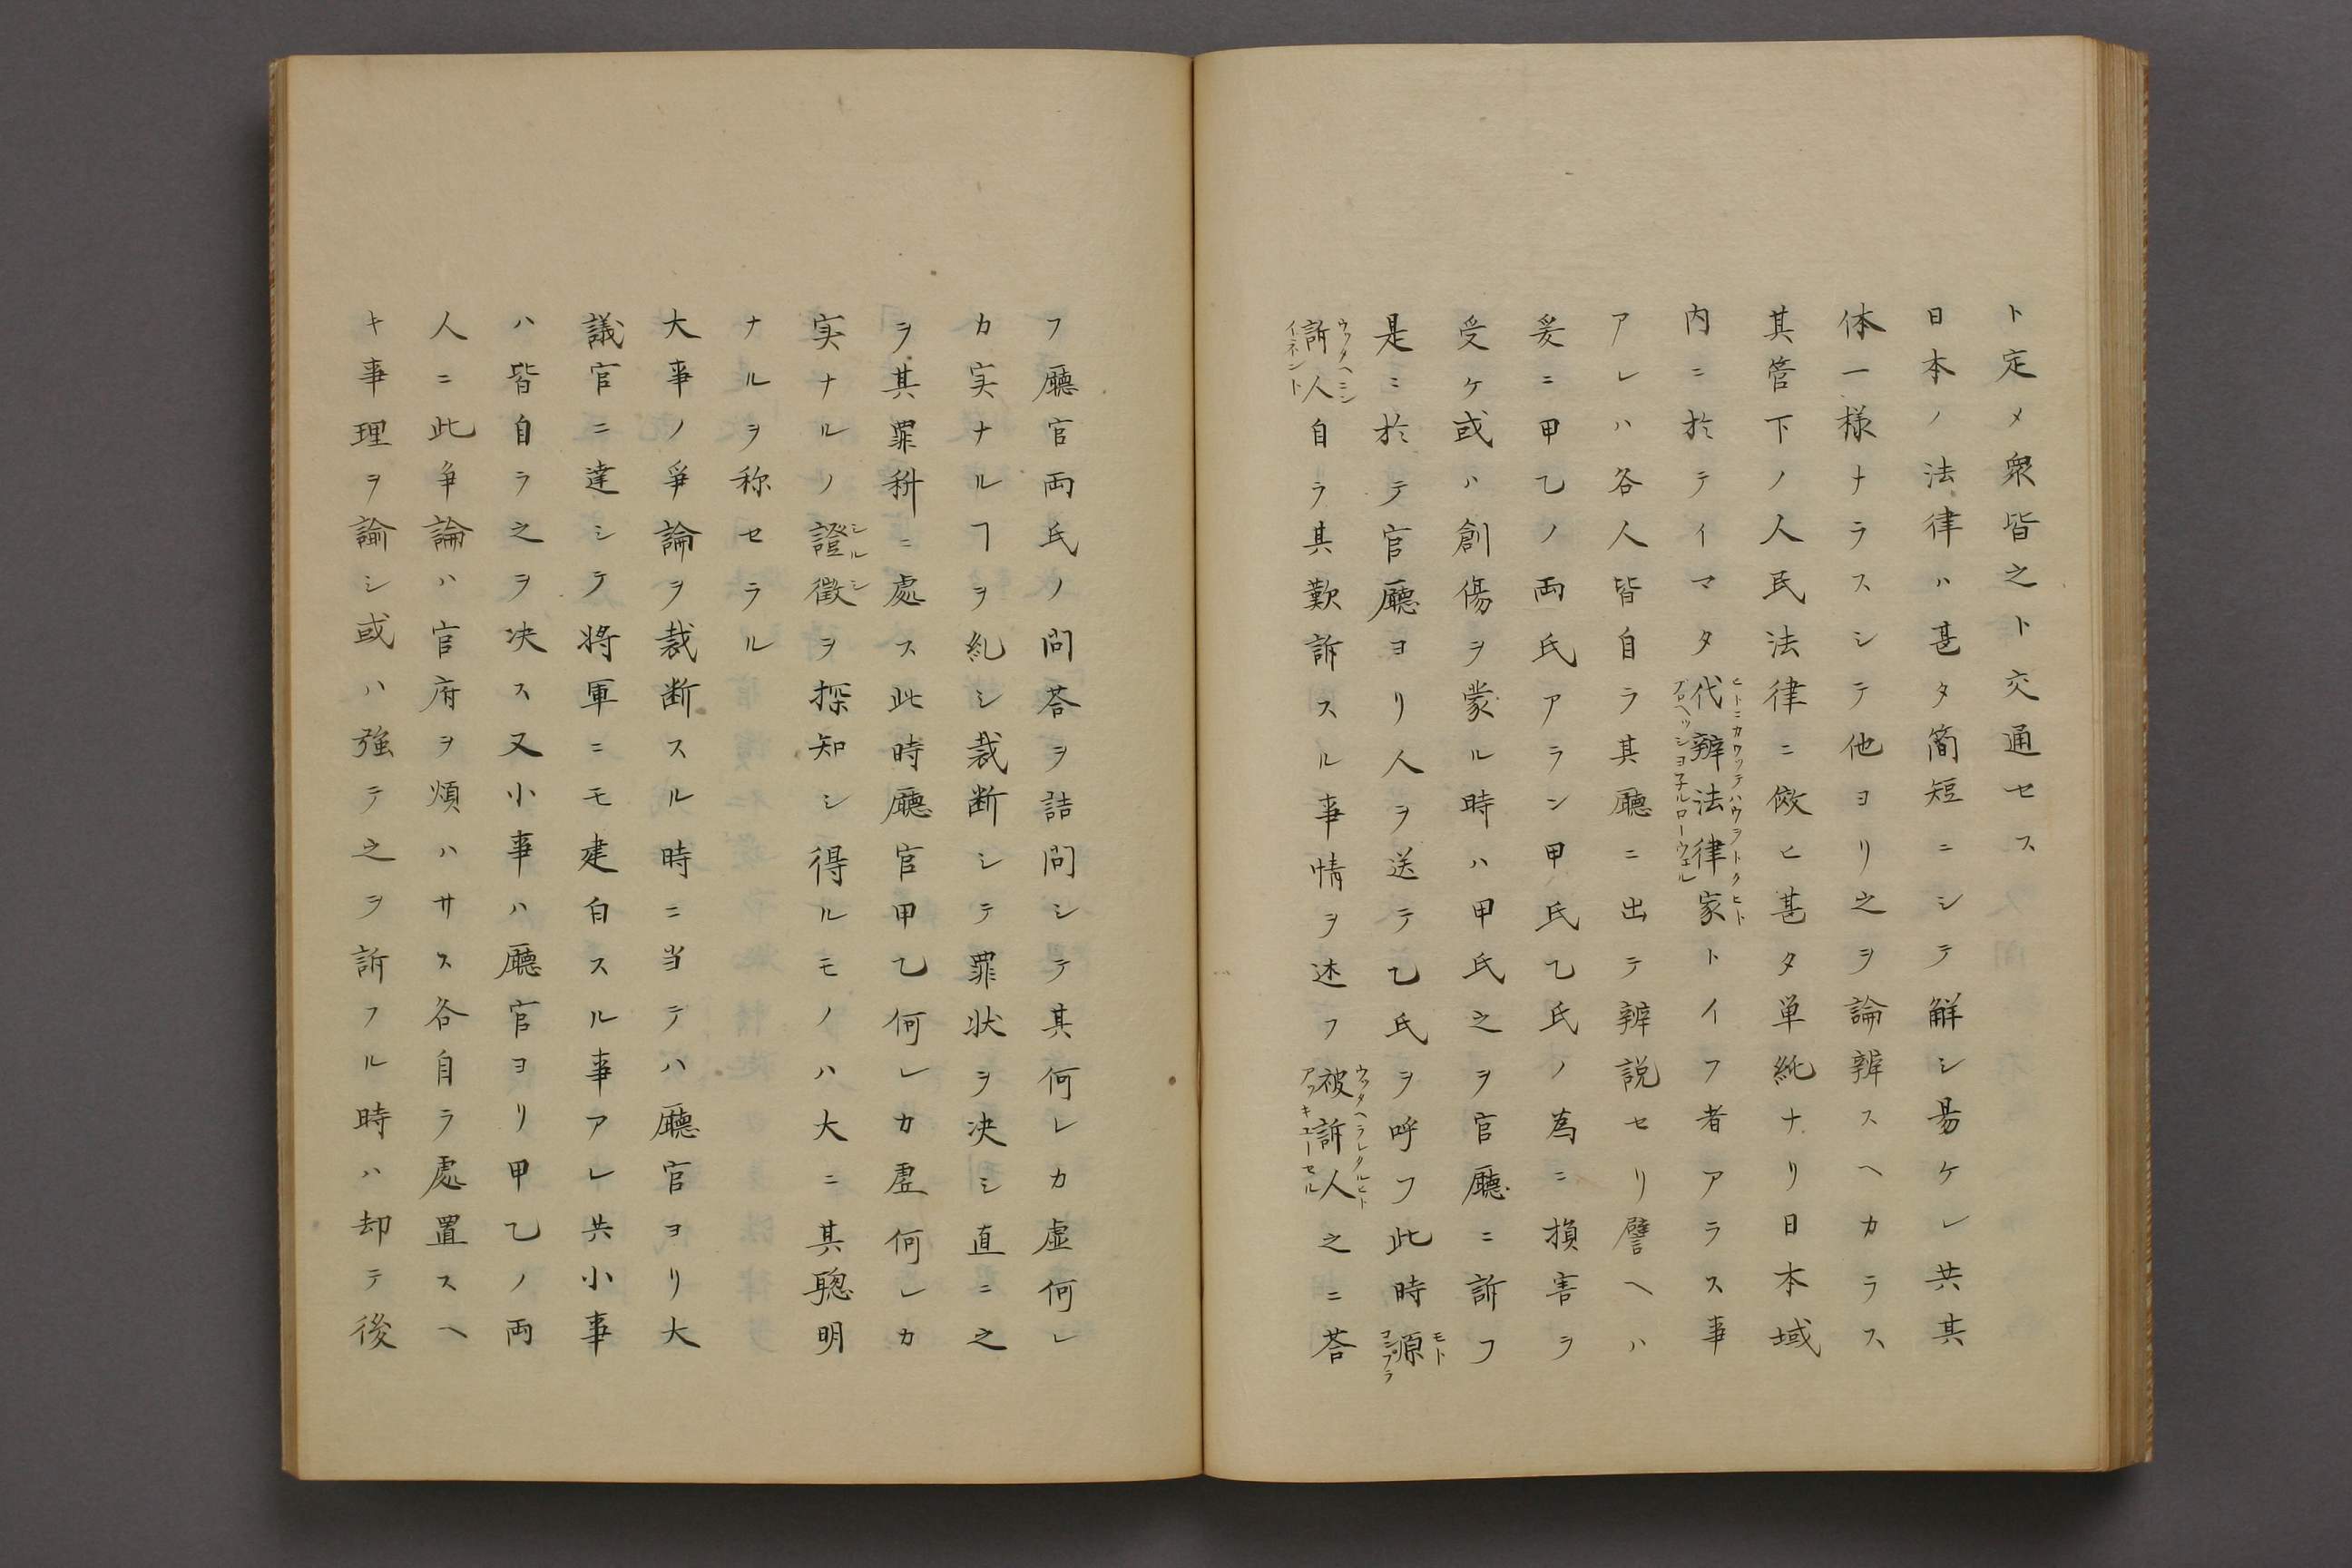 ト定メ衆皆之ト交通セス
日本ノ法律ハ甚タ簡短ニシテ觧シ昜ケレ共其
体一様ナラスシテ他ヨリ之ヲ論辨スヘカラス
其管下ノ人民法律ニ倣ヒ甚タ単純ナリ日本域
内ニ於テイマタ代辨法律家トイフ者アラス事
ヒトニカワツテハウヲトクヒト
プロヘッシヨ子ルローウエル
アレハ各人皆自ラ其廳ニ出テ辨説セリ譬ヘハ
爰ニ甲乙ノ両氏アラン甲氏乙氏ノ為ニ損害ヲ
受ケ或ハ創傷ヲ蒙ル時ハ甲氏之ヲ官廳ニ訴フ
是ニ於テ官廳ヨリ人ヲ送テ乙氏ヲ呼フ此時源
モト
コンプラ
訴人自ラ其歎訴スル事情ヲ述フ被訴人之ニ荅
ウッタヘニン
イネント
ウッタヘラレタルヒト
アッキユーセル
フ廳官両氏ノ問荅ヲ詰問シテ其何レカ虚何レ
カ実ナルヿヲ糺シ裁断シテ罪状ヲ决シ直ニ之
ヲ其罪科ニ處ス此時廳官甲乙何レカ虚何レカ
実ナルノ證徴ヲ探知シ得ルモノハ大ニ其聡明
シルシ
ナルヲ称セラル
大事ノ爭論ヲ裁断スル時ニ当テハ廳官ヨリ大
議官ニ達シテ将軍ニモ建白スル事アレ共小事
ハ皆自ラ之ヲ决ス又小事ハ廳官ヨリ甲乙ノ両
人ニ此争論ハ官府ヲ煩ハサス各自ラ處置スヘ
キ事理ヲ諭シ或ハ強テ之ヲ訴フル時ハ却テ後